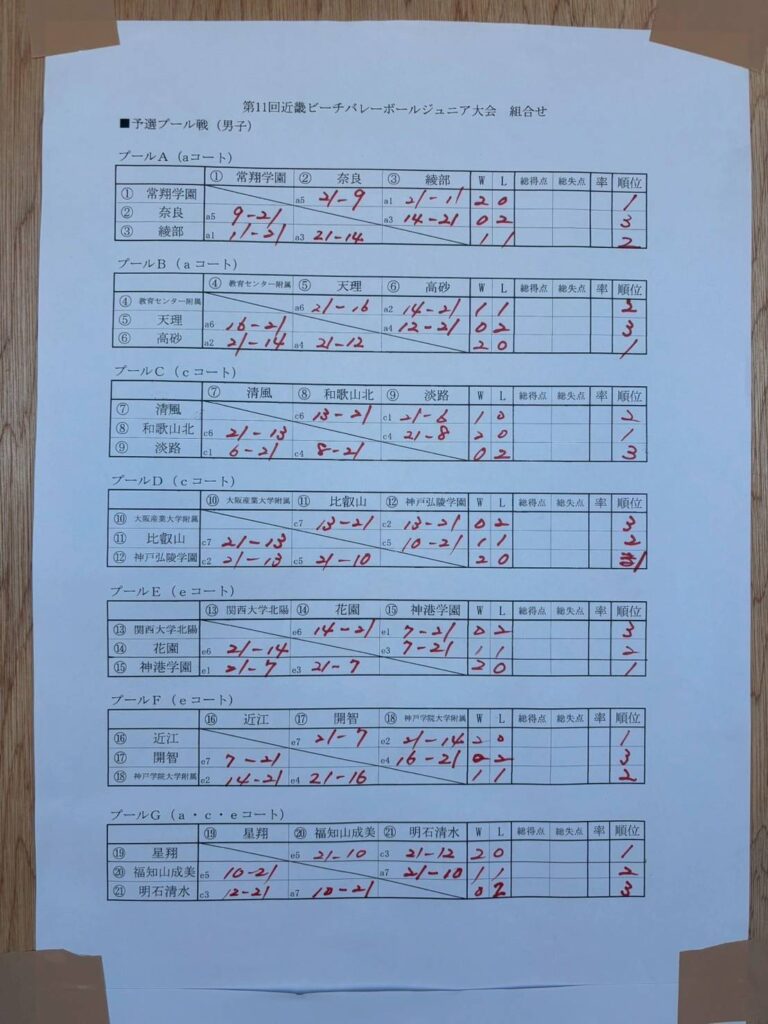 第11回近畿ビーチバレーボールジュニア大会 組合せ
■予選プール戦（男子）
プールA（aコート）
① 常翔学園 ② 奈良 ③ 綾部 W L 総得点 総失点 率 順位
① 常翔学園 a5 21-9 a1 21-11 2 0 1
② 奈良 a5 9-21 a3 14-21 0 2 3
③ 綾部 a1 11-21 a3 21-14 1 1 2
プールB（aコート）
④ 教育センター附属 ⑤ 天理 ⑥ 高砂 W L 総得点 総失点 率 順位
④ 教育センター附属 a6 21-16 a2 14-21 1 1 2
⑤ 天理 a6 16-21 a4 12-21 0 2 3
⑥ 高砂 a2 21-14 a4 21-12 2 0 1
プールC（cコート）
⑦ 清風 ⑧ 和歌山北 ⑨ 淡路 W L 総得点 総失点 率 順位
⑦ 清風 c6 13-21 c1 21-6 1 0 2
⑧ 和歌山北 c6 21-13 c4 21-8 2 0 1
⑨ 淡路 c1 6-21 c4 8-21 0 2 3
プールD（cコート）
⑩ 大阪産業大学附属 ⑪ 比叡山 ⑫ 神戸弘陵学園 W L 総得点 総失点 率 順位
⑩ 大阪産業大学附属 c7 13-21 c2 13-21 0 2 3
⑪ 比叡山 c7 21-13 c5 10-21 1 1 2
⑫ 神戸弘陵学園 c2 21-13 c5 21-10 2 0 1
プールE（eコート）
⑬ 関西大学北陽 ⑭ 花園 ⑮ 神港学園 W L 総得点 総失点 率 順位
⑬ 関西大学北陽 e6 14-21 e1 7-21 0 2 3
⑭ 花園 e6 21-14 e3 7-21 1 1 2
⑮ 神港学園 e1 21-7 e3 21-7 2 0 1
プールF（eコート）
⑯ 近江 ⑰ 開智 ⑱ 神戸学院大学附属 W L 総得点 総失点 率 順位
⑯ 近江 e7 21-7 e2 21-14 2 0 1
⑰ 開智 e7 7-21 e4 16-21 0 2 3
⑱ 神戸学院大学附属 e2 14-21 e4 21-16 1 1 2
プールG（a・c・eコート）
⑲ 星翔 ⑳ 福知山成美 ㉑ 明石清水 W L 総得点 総失点 率 順位
⑲ 星翔 e5 21-10 c3 21-12 2 0 1
⑳ 福知山成美 e5 10-21 a7 21-10 1 1 2
㉑ 明石清水 c3 12-21 a7 10-21 0 2 3